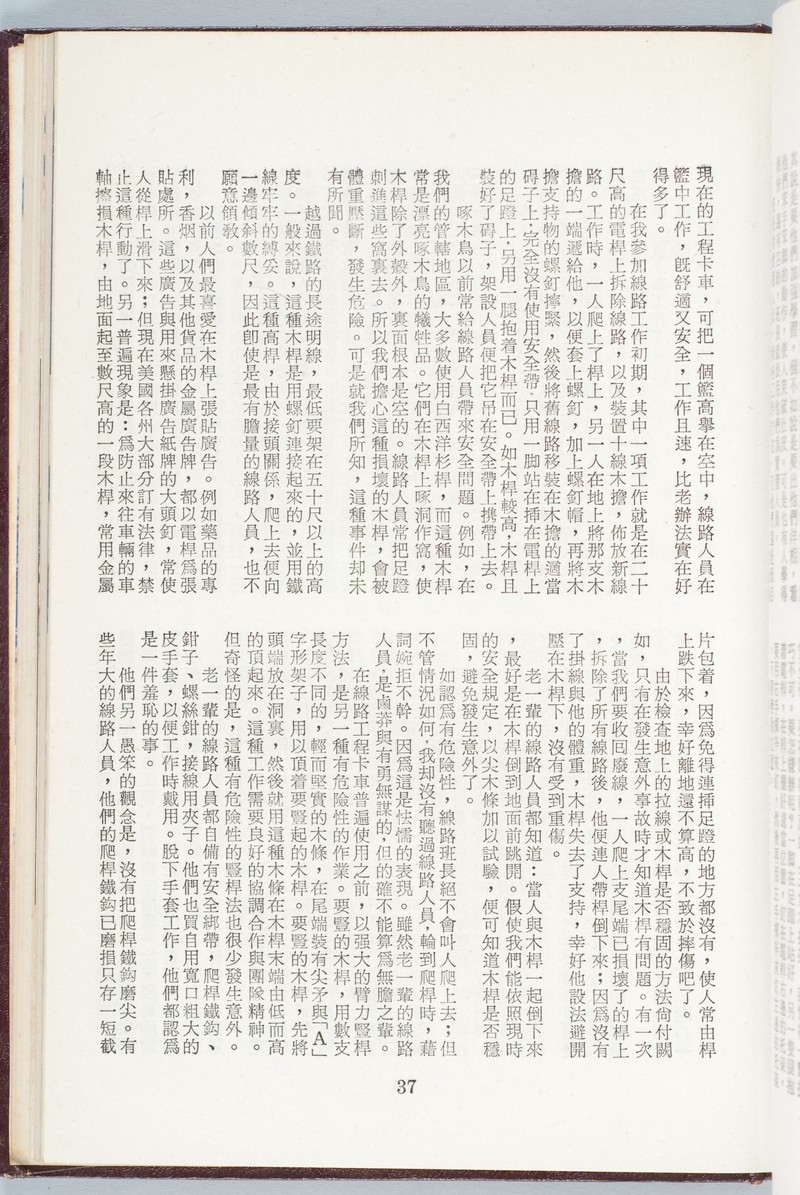 現在的工程卡車，可把一個籃高擧在空中，線路人員在
籃中工作，既舒適又安全，工作且速，比老辦法實在好
得多了。
在我參加線路工作初期，其中一項工作就是在二十
尺高的電桿上拆除線路，以及裝置十線木擔，佈放新線
路。工作時，一人爬上了桿上，另一人在地上將那支木
擔的一端遞給他，以便套上螺釘，加上螺釘帽，再將木
擔支持物的螺釘擰緊，然後將舊線路移裝在木擔的適當
碍子上，完全沒有使用安全帶，只用一脚站在揷在電桿上
的足蹬上，另用一腿抱着木桿而已。如木桿較高，木桿且
裝好了碍子，架設人員便把它吊在安全帶上携帶上去。
啄木鳥以前常給線路人員帶來安全問題。例如，在
我們的管轄地區，大多數使用白西洋杉桿，而這種木桿
常是漂亮啄木鳥的犧牲品。它們在木桿上啄洞作窩，使
木桿除了外殼外，裏面根本是空的。線路人員常把足蹬
刺進這些窩裏去。所以我們擔心這種損壞的木桿，會被
體重壓斷，發生危險。可是就我們所知，這種事件却未
有所聞。
越過鐵路的長途明線，最低要架在五十尺以上的高
度。一般來說，這種木桿是用螺釘連接起來的，並用鐵
線牢牢的縛妥。這種高桿，由於接頭關係，爬上去便向
一邊傾斜數尺，因此卽使是最有膽量的線路人員，也不
願意領敎。
以前人們最喜愛在木桿上張貼廣告。例如藥品的專
利，香烟，以及其他貨品的金屬廣告牌，都以電桿爲張
貼處所。這些廣告與用來懸掛廣告紙牌的大頭釘，常使
人從桿上滑下來；但現在美國各州大部分訂有法律，禁
止這種行動了。另一普遍現象是：爲防止來往車輛的車
軸擦損木桿，由地面起至數尺高的一段木桿，常用金屬
片包着，因爲免得連揷足蹬的地方都沒有，使人常由桿
上跌下來，幸好離地還不算高，不致於摔傷吧了。
由於檢查地上的拉線或木桿是否穩固的方法尙付闕
如，只有在發生意外事故時才知道木桿有問題。有一次
，當我們要收回廢線，一人爬上支尾端已損壞了的桿上
，拆除了所有線路後，他便連人帶桿倒下來；因爲沒有
了掛線與他的體重，木桿失去了支持，幸好他設法避開
壓在木桿下，沒有受到重傷。
老一輩的線路人員都知道：當人與木桿一起倒下來
，最好是在木桿倒到地面前跳開。假使我們能依照現時
的安全規定，以尖木條加以試驗，便可知道木桿是否穩
固，避免發生意外了。
如認爲有危險性，線路班長絕不會叫人爬上去；但
不管情況如何，我却沒有聽過線路人員，輪到爬桿時，藉
詞婉拒不幹。因爲這是怯懦的表現。雖然老一輩的線路
人員，是鹵莽與有勇無謀的，但的確不能算爲無膽之輩。
在線路工程卡車普遍使用之前，以强大的臂力豎桿
方法，是另一種有危險性的作業。要豎的木桿，用數支
長度不同的，輕而堅實的木條，在尾端裝有尖矛與「A」
字形架子，用以頂着要豎起的木桿。要豎的木桿，先將
頭端放在洞裏，然後就用這種木條在木桿末端由低而高
的頂起來。這種工作需要良好的協調合作與團隊精神。
但奇怪的是，這種有危險性的豎桿法也很少發生意外。
老一輩的線路人員都自備有安全綁帶，爬桿鐵鈎、
鉗子、螺絲鉗，接線用夾子。他們也買自用寬口粗大的
皮手套，以便工作時戴用。脫下手套工作，他們都認爲
是一件羞恥的事。
他們另一愚笨的觀念是，沒有把爬桿鐵鈎磨尖。有
些年大的線路人員，他們的爬桿鐵鈎已磨損只存一短截
37